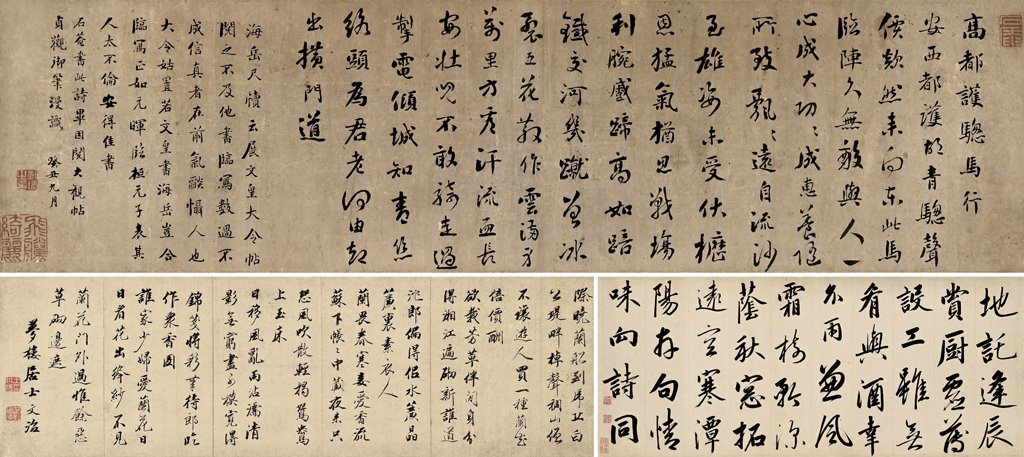 高都護驄馬行
安西都護胡青驄聲
價欻然来向東此馬
臨陣久無敵與人一
心成大功ミ成惠養隨
所致飄ミ遠自流沙
至雄姿未受伏櫪
恩猛氣猶思戰場
利腕蹄高如踣
鐵交河幾蹴曾冰
裂五花散作雲滿身
萬里方看汗流血長
安壯兒不敢騎走過
掣電傾城知青絲
絡頭為君老何由却
出横門道
海岳尺牘云展文皇大令帖
閱之不及他書臨寫數過不
成信真者在前氣燄懾人也
大令姑置若文皇書海岳豈合
臨寫正如元暉臨桓元子表其
人太不倫安得佳書
石菴書此詩畢因閱大觀帖
貞觀御筆漫識 癸丑九月
地託逢辰
賞厨薄
設工雖
肴與酒幸
不雨兼風
霜樹秋深
蔭秋窓拓
遠空寒潭
陽存句情
味向詩同
際曉蘭船到岸白
公堤畔棹聲稠山僧
不禁遊人買一種蘭花
倍價酬
欲栽芳草伴閒身分
得湘江遍砌新誰道
郎偏得侶水黄晶
簾裏素衣人
蘭畏春寒妾愛香流
蘇下帳ミ中藏夜来只
恐風吹散輕鴛鴦
上玉床
日移風亂雨沾濡清
影無窮畫模覓得
錦箋將彩筆待郎
作香圖
誰家少婦愛蘭花日
日看花出絳紗不見
蘭花門外過惟餘惡
草兩邊遮
夢樓居士文治